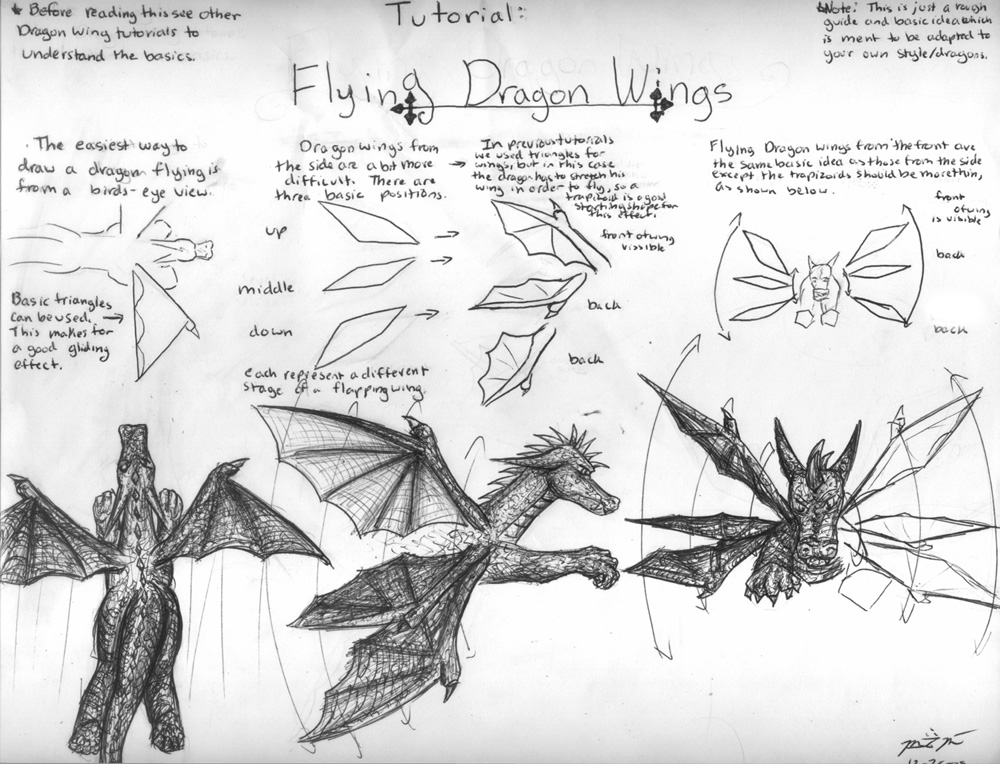 * Before reading this see other
Dragon Wing tutorials to
understand the basics.
Tutorial:
*Note: This is just a rough
guide and basic idea which
is ment to be adapted to
your own style/dragons.
Flying Dragon Wings
. The easiest way to
draw a dragon flying is
from a birds-eye view.
Basic triangles
can be used. →
This makes for
a good gliding
effect.
Dragon wings from
the side are a bit more →
difficult. There are
three basic positions.
In previous tutorials
we used triangles for
wings, but in this case
the dragon has to stretch his
wing in order to fly, so a
trapizoid is a good
starting shape for
this effect.
up
middle
down
front of wing
vissible
back
back
each represent a different
stage of a flapping wing.
Flying Dragon wings from the front are
the same basic idea as those from the side
except the trapizoids should be more thin,
as shown below.
front
of wing
is visible
back
back